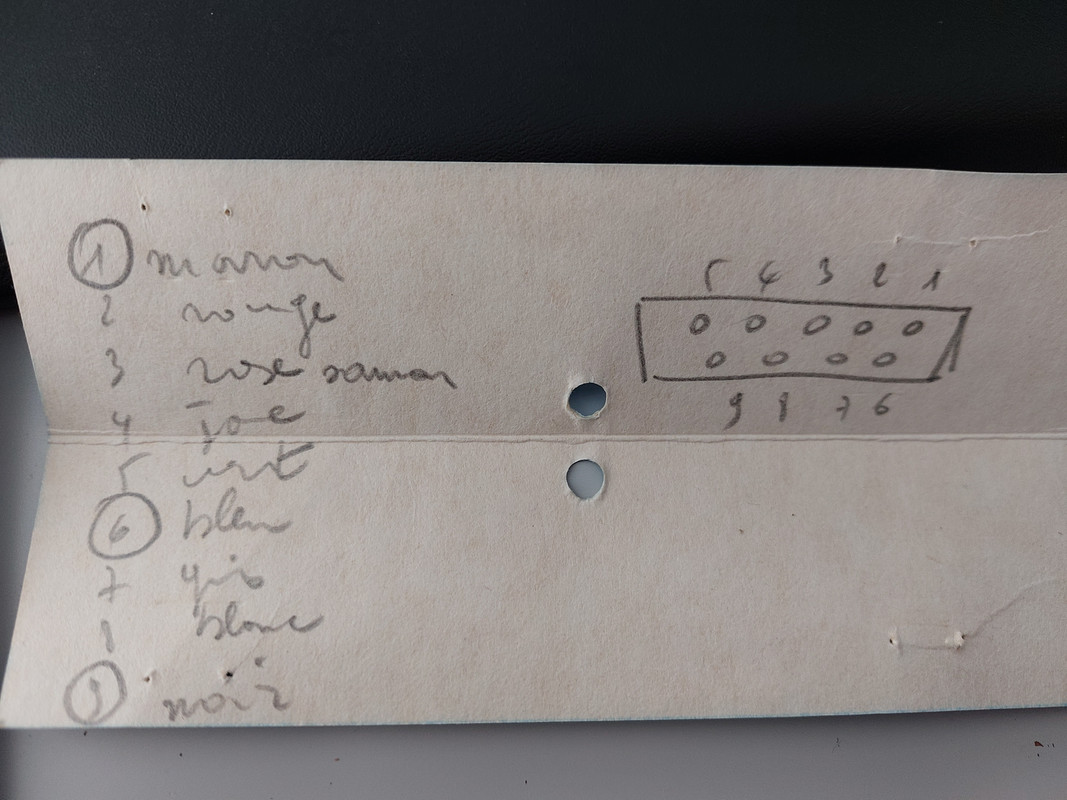 1 maron
2 rouge
3 rose saumon
4 jae
5 vert
6 bleu
7 gris
8 blanc
9 noir
5 4 3 2 1
9 8 7 6